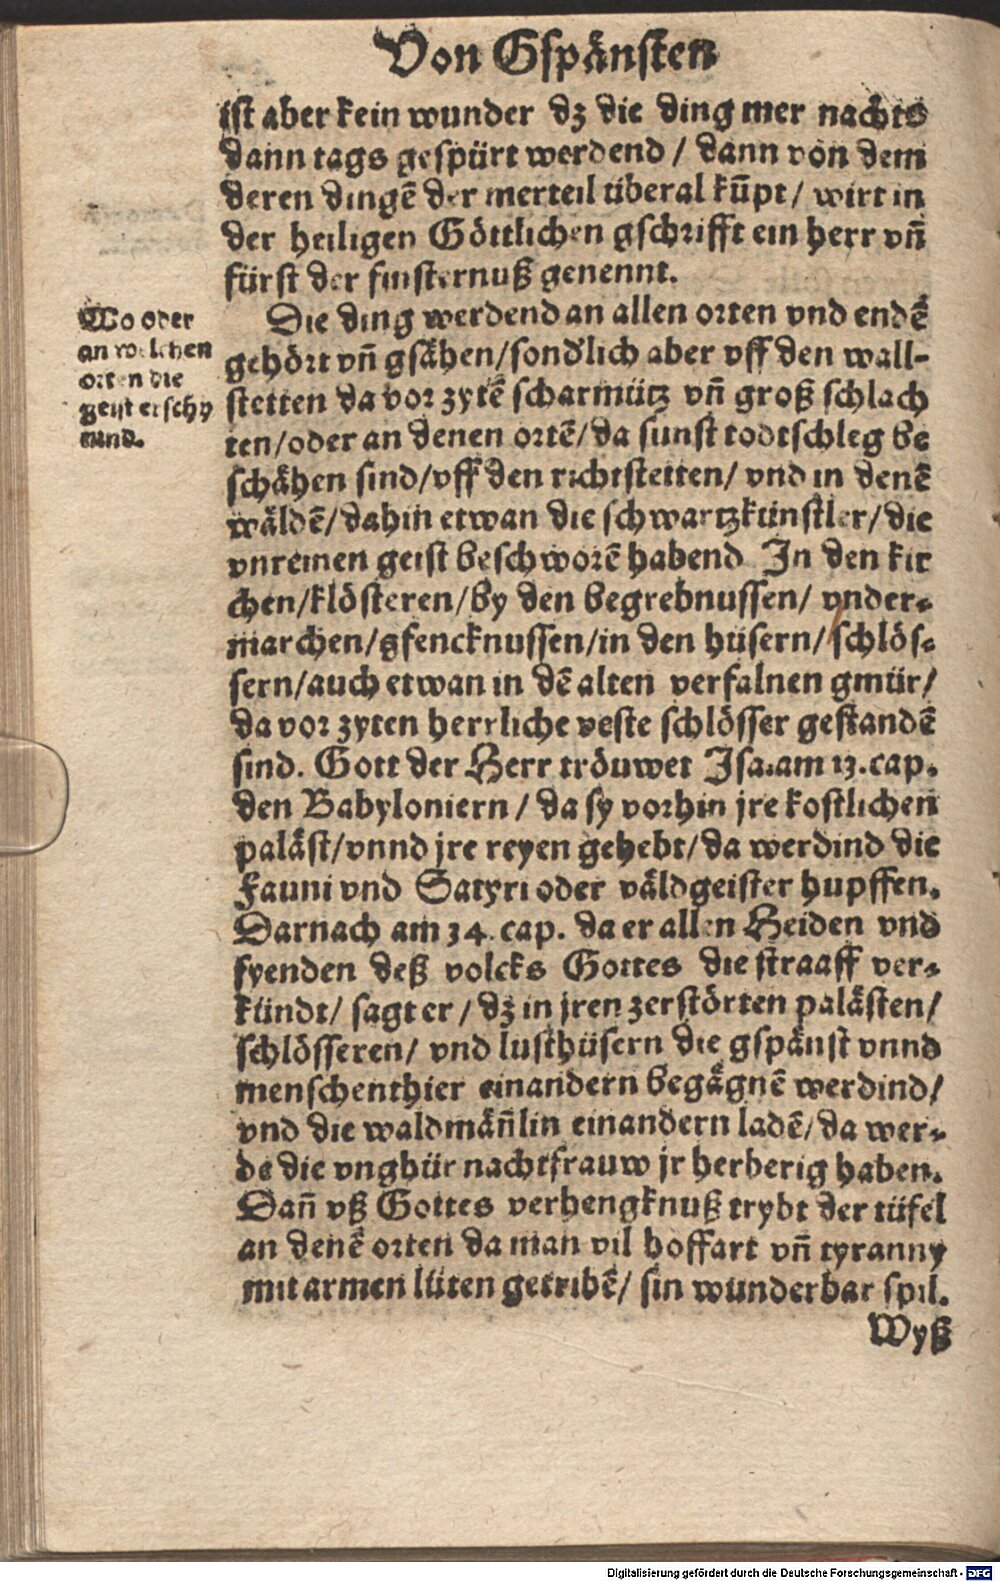 Von Gspänsten
ist aber kein wunder dz die ding mer nachts
dann tags gespürt werdend / dann von dem
deren dingē der merteil überal kūpt / wirt in
der heiligen Göttlichen gschrifft ein herr vn̄
fürst der finsternuß genennt.
Die ding werdend an allen orten vnd endē
gehört vn̄ gsähen / sond'lich aber vff den wall-
stetten da vor zytē scharmütz vn̄ groß schlach
ten / oder an denen ortē / da sunst todtschleg be
schähen sind / vff den richtstetten / vnd in denē
wäldē / dahin etwan die schwartzkünstler / die
vnreinen geist beschworē habend. In den kir
chen / klösteren / by den begrebnussen / vnder-
marchen / gfencknussen / in den hüsern / schlös-
sern / auch etwan in dē alten verfalnen gmür /
da vor zyten herrliche veste schlösser gestandē
sind. Gott der Herr tröuwet Jsa. am 13. cap.
den Babyloniern / da sy vorhin jre kostlichen
paläst / vnnd jre reyen gehebt / da werdind die
Fauni vnd Satyri oder väldgeister hupffen.
Darnach am 34. cap. da er allen Heiden vnd
fyenden deß volcks Gottes die straaff ver-
kündt / sagt er / dz in jren zerstörten palästen /
schlösseren / vnd lusthüsern die gspänst vnnd
menschenthier einandern begägnē werdind /
vnd die waldmän̄lin einandern ladē / da wer-
de die vnghür nachtfrauw jr herberig haben.
Dan̄ vß Gottes verhengknuß trybt der tüfel
an denē orten da man vil hoffart vn̄ tyranny
mit armen lüten getribē / sin wunderbar spil.
Wyß
Wo oder
an welchen
orten die
geist erschy
nind.
Digitalisierung gefördert durch die Deutsche Forschungsgemeinschaft - DFG